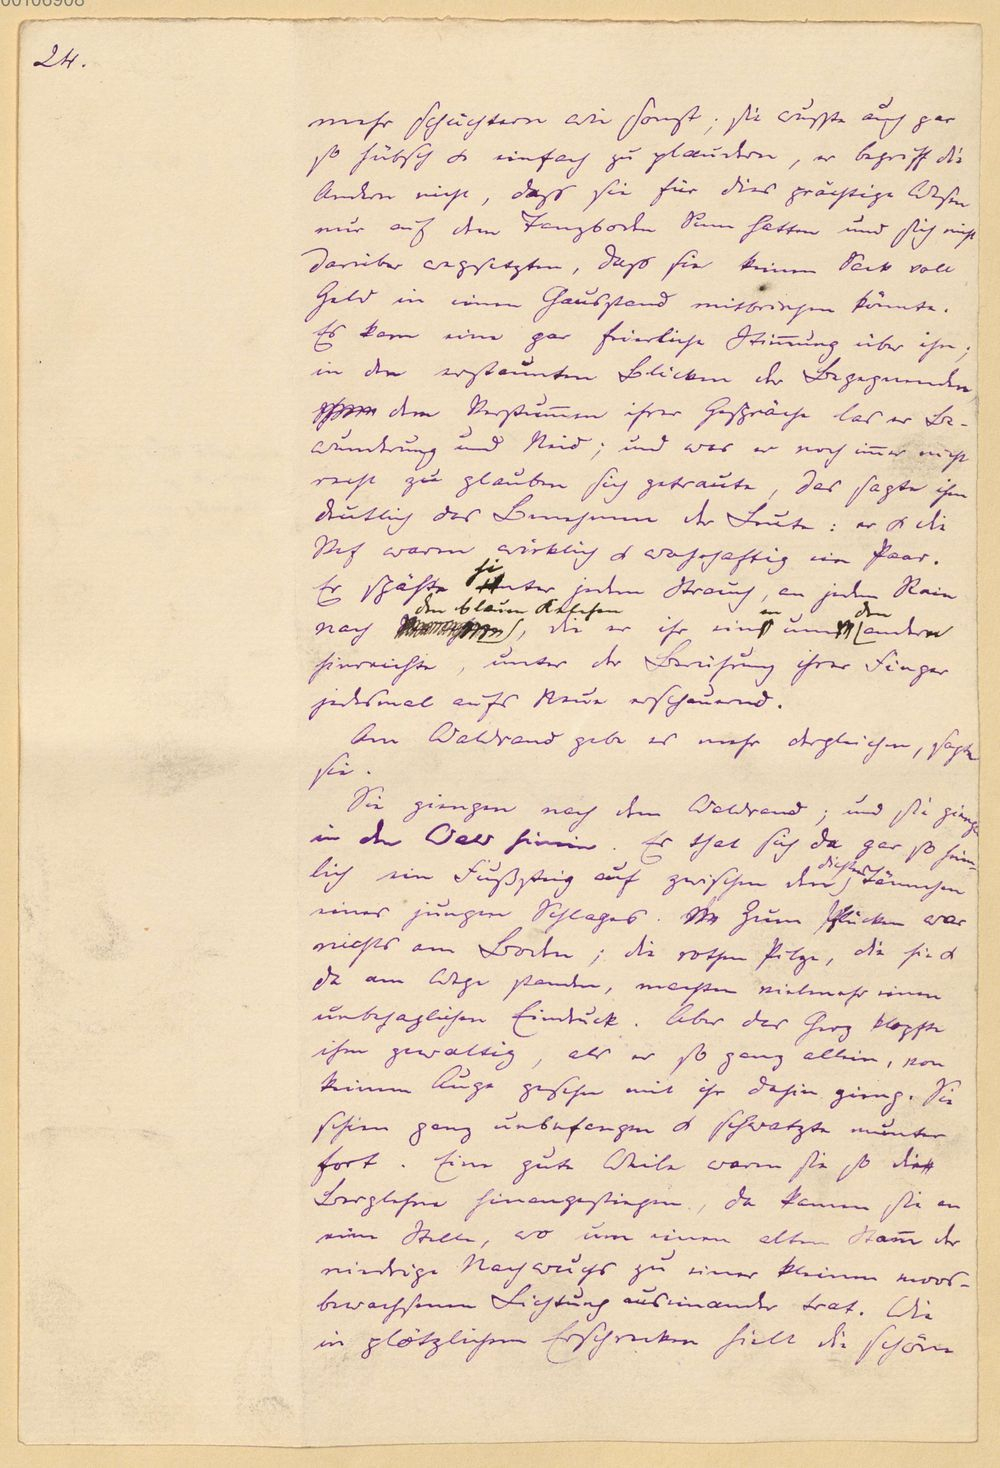 00106908
24.
mehr schüchtern wie sonst; sie wußte auch gar
so hübsch & einfach zu plaudern, er begriff die
Andern nicht, daß sie für dies prächtige Wesen
nur auf dem Tanzboden Sinn hatten und sich nicht
darüber wegsetzten, daß sie keinen Sack voll
Geld in einen Hausstand mitbringen könnte.
Es kam eine gar feierliche Stimmung über ihn;
in den erstaunten Blicken der Begegnenden
dem Verstummen ihrer Gespräche las er Be-
wunderung und Neid; und was er noch immer nicht
recht zu glauben sich getraute, das sagte ihm
deutlich das Benehmen der Leute: er & die
waren wirklich & wahrhaftig ein Paar.
Er spähte hinter jedem Strauch, an jedem Rain
nach den blauen, die er ihr einen um den andern
hinreichte, unter der Berührung ihrer Finger
jedesmal aufs Neue erschauernd.
Am Waldrand gebe es mehr dergleichen, sagte
sie.
Sie giengen nach dem Waldrand; und sie giengen
in den Wald hinein. Er that sich da gar so heim-
lich ein Fußsteig auf zwischen den dichten Tännchen
eines jungen Schlages. Zum Pflücken war
nichts am Boden; die rothen Pilze, die hie &
da am Wege standen, machten vielmehr einen
unbehaglichen Eindruck. Aber das Herz klopfte
ihm gewaltig, als er so ganz allein, von
keinem Auge gesehen mit ihr dahin gieng. Sie
schien ganz unbefangen & schwatzte munter
fort. Eine gute Weile waren sie so die
Berglehne hinangestiegen, da kamen sie an
eine Stelle, wo um einen alten Stamm der
niedrige Nachwuchs zu einer kleinen moos-
bewachsenen Lichtung auseinander trat. Wie
in plötzlichem Erschrecken hielt die schöne